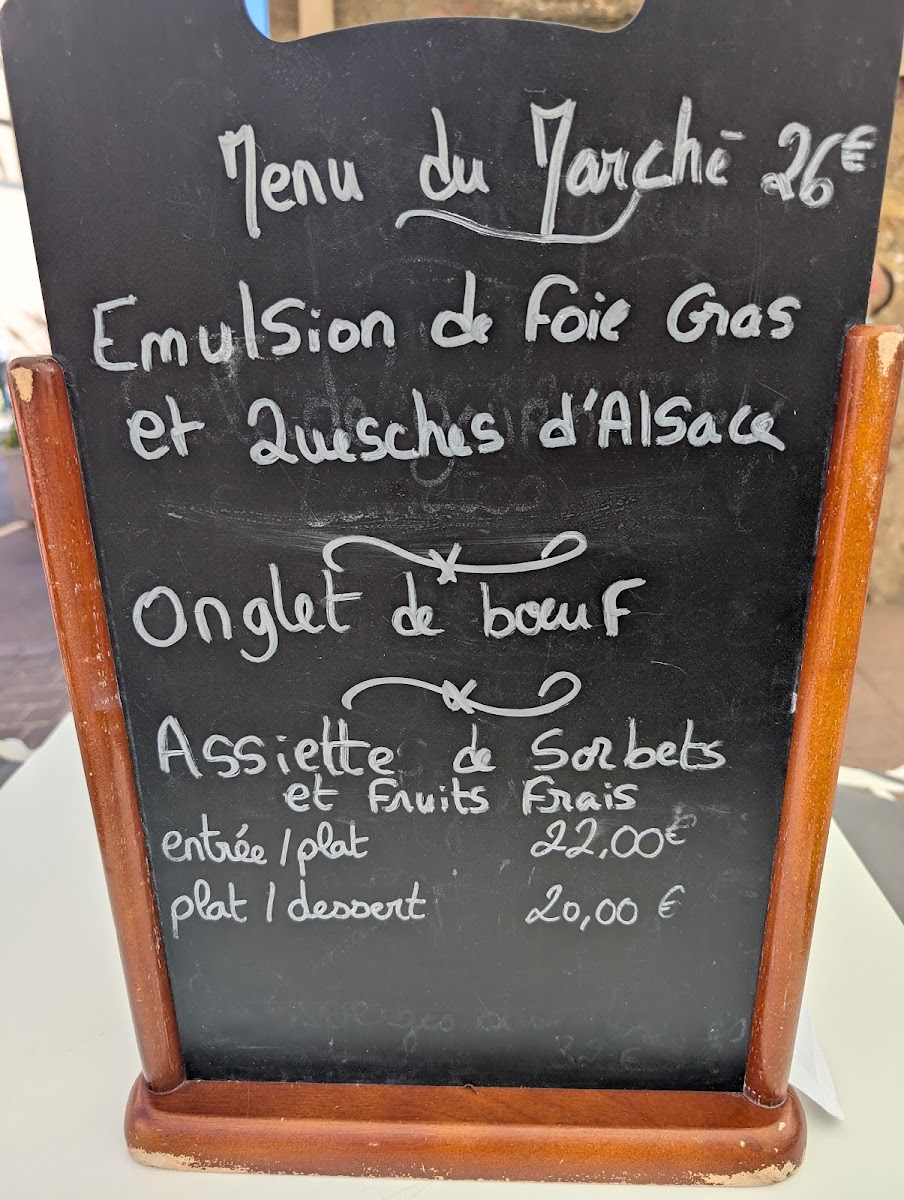 Menu du Marché 26€
Emulsion de Foie Gras
et Quesches d'Alsace
Onglet de bœuf
Assiette de Sorbets
et Fruits Frais
entrée / plat 22,00€
plat / dessert 20,00 €